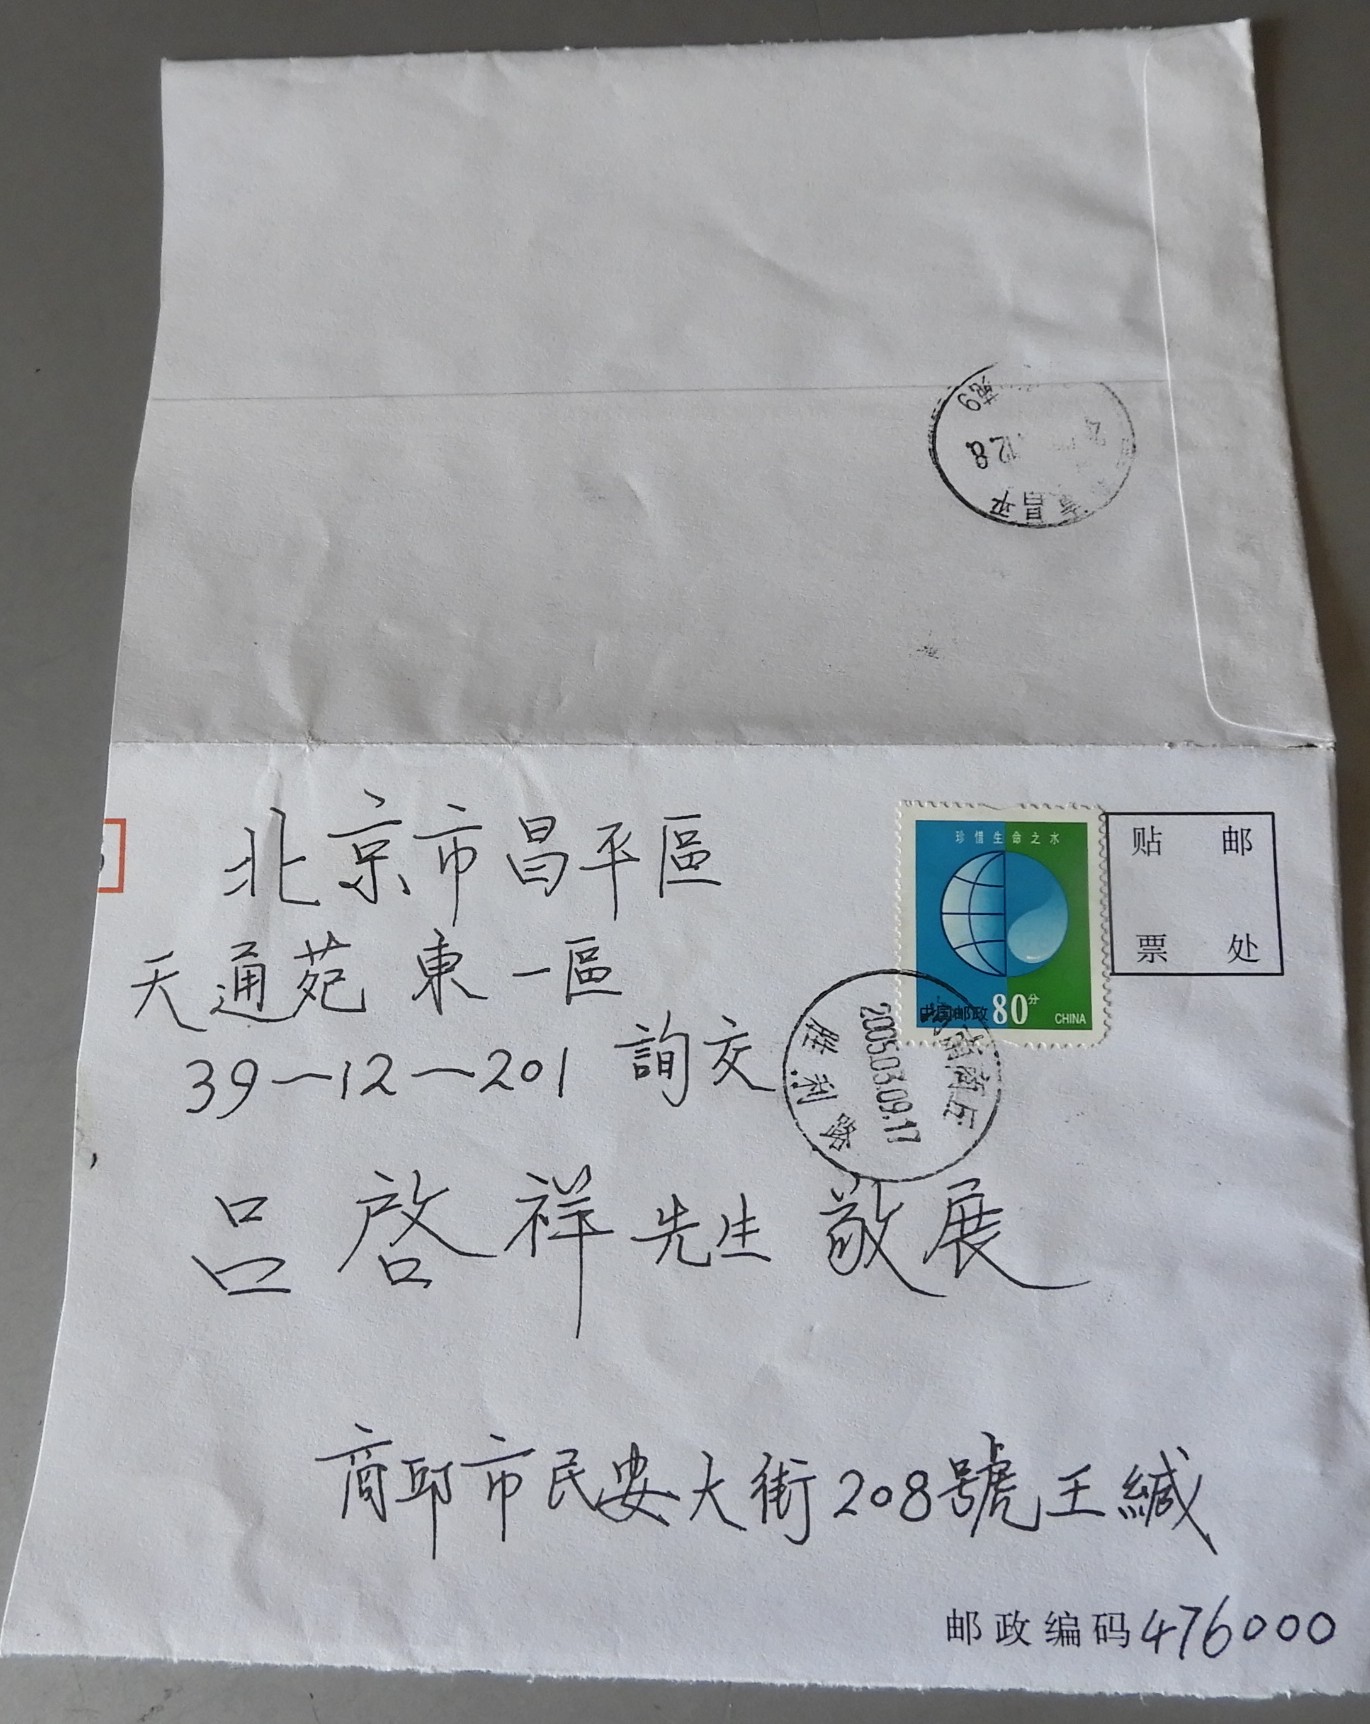 12.8
昌平
北京市昌平區
珍惜生命之水
贴 邮
票 处
中国邮政 80分 CHINA
天通苑 東一區
39—12—201 詢交
河南商丘
2005.03.09.17
胜利路
吕啓祥先生 敬展
商邱市民安大街208號王緘
邮政编码476000